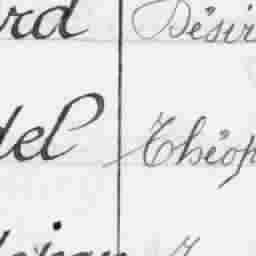 rd Désir
del Théop